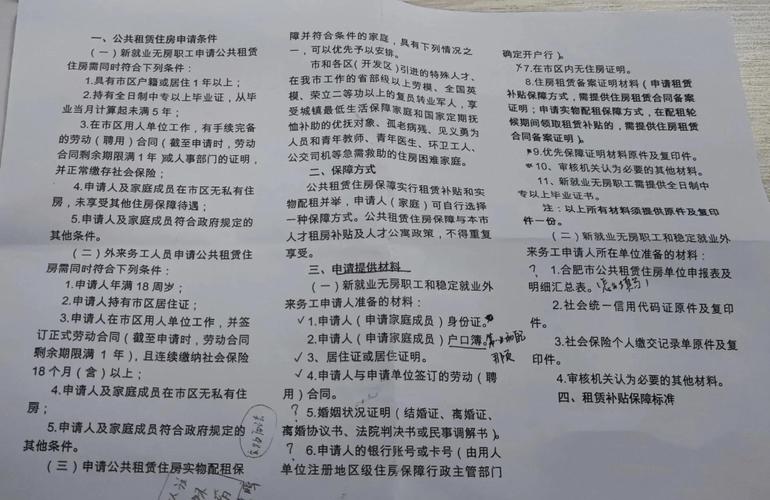 一、公共租赁住房申请条件
（一）新就业无房职工申请公共租赁
住房需同时符合下列条件：
1.具有市区户籍或居住1年以上；
2.持有全日制中专以上毕业证，从毕
业当月计算起未满5年；
3.在市区用人单位工作，有手续完备
的劳动（聘用）合同（截至申请时，劳动
合同剩余期限满1年）或人事部门的证明，
并正常缴存社会保险；
4.申请人及家庭成员在市区无私有住
房，未享受其他住房保障待遇；
5.申请人及家庭成员符合政府规定的
其他条件。
（二）外来务工人员申请公共租赁住
房需同时符合下列条件：
1.申请人年满18周岁；
2.申请人持有市区居住证；
3.申请人在市区用人单位工作，并签
订正式劳动合同（截至申请时，劳动合同
剩余期限满1年），且连续缴纳社会保险
18个月（含）以上；
4.申请人及家庭成员在市区无私有住
房；
5.申请人及家庭成员符合政府规定的
其他条件。
（三）申请公共租赁住房实物配租保
障并符合条件的家庭，具有下列情况之
一，可以优先予以安排。
市和各区（开发区）引进的特殊人才、
在我市工作的省部级以上劳模、全国英
模、荣立二等功以上的复员转业军人，享
受城镇最低生活保障家庭和国家定期抚
恤补助的优抚对象、孤老病残、见义勇为
人员和青年教师、青年医生、环卫工人、
公交司机等急需救助的住房困难家庭。
二、保障方式
公共租赁住房保障实行租赁补贴和实
物配租并举，申请人（家庭）可自行选择
一种保障方式。公共租赁住房保障与本市
人才租房补贴及人才公寓政策，不得重复
享受。
三、申请提供材料
（一）新就业无房职工和稳定就业外
来务工申请人准备的材料：
✓1.申请人（申请家庭成员）身份证。
2.申请人（申请家庭成员）户口簿。
✓3、居住证或居住证明。
✓4.申请人与申请单位签订的劳动（聘
用）合同。
？5.婚姻状况证明（结婚证、离婚证、
离婚协议书、法院判决书或民事调解书）。
？6.申请人的银行账号或卡号（由用人
单位注册地区级住房保障行政主管部门
确定开户行）。
7.在市区内无住房证明。
8.住房租赁备案证明材料（申请租赁
补贴保障方式，需提供住房租赁合同备案
证明；申请实物配租保障方式，在配租轮
候期间领取租赁补贴的，需提供住房租赁
合同备案证明）。
9.优先保障证明材料原件及复印件。
10、审核机关认为必要的其他材料。
11、新就业无房职工需提供全日制中
专以上毕业证书。
注：以上所有材料须提供原件及复印
件一份。
（二）新就业无房职工和稳定就业外
来务工申请人所在单位准备的材料：
？1.合肥市公共租赁住房单位申报表及
明细汇总表。
2.社会统一信用代码证原件及复印
件。
3.社会保险个人缴交记录单原件及复
印件。
4.审核机关认为必要的其他材料。
四、租赁补贴保障标准